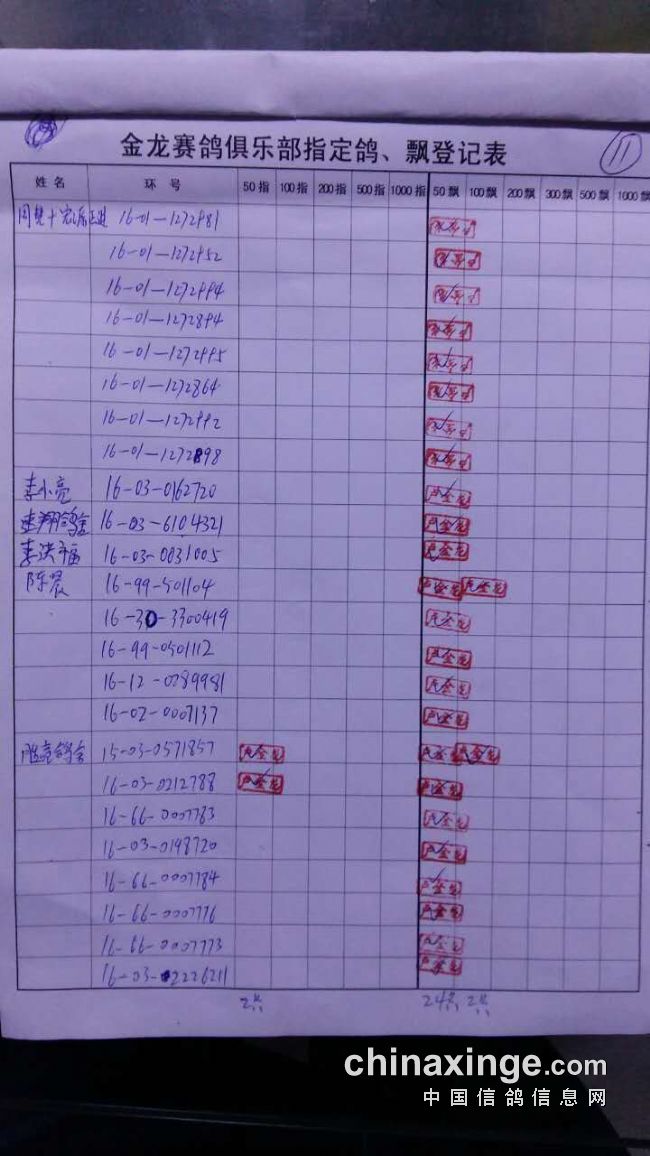 11
金龙赛鸽俱乐部指定鸽、飘登记表
姓名 环号 50指 100指 200指 500指 1000指 50飘 100飘 200飘 300飘 500飘 1000飘
16-01-1272981
16-01-1272952
16-01-1272994
16-01-1272894
16-01-1272995
16-01-1272864
16-01-1272992
16-01-1272898
李小亮 16-03-0162720
16-03-6104321
李洪福 16-03-0031005
陈晨 16-99-501104
16-30-3300419
16-99-0501112
16-12-0289981
16-02-0007137
15-03-0571857
16-03-0212788
16-66-0007783
16-03-0198720
16-66-0007784
16-66-0007776
16-66-0007773
16-03-02226211
chinaxinge.com
中国信鸽信息网